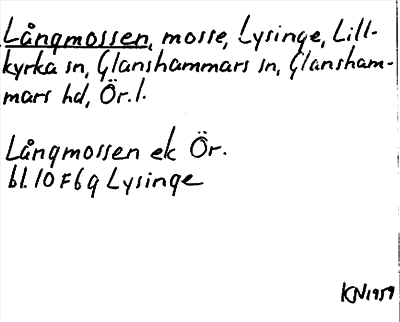 Långmossen, mosse, Lysinge, Lill-
kyrka sn, Glanshammars sn, Glansham-
mars hd, Ör. l.
Långmossen ek Ör.
bl. 10 F 6 g Lysinge
KN 1959